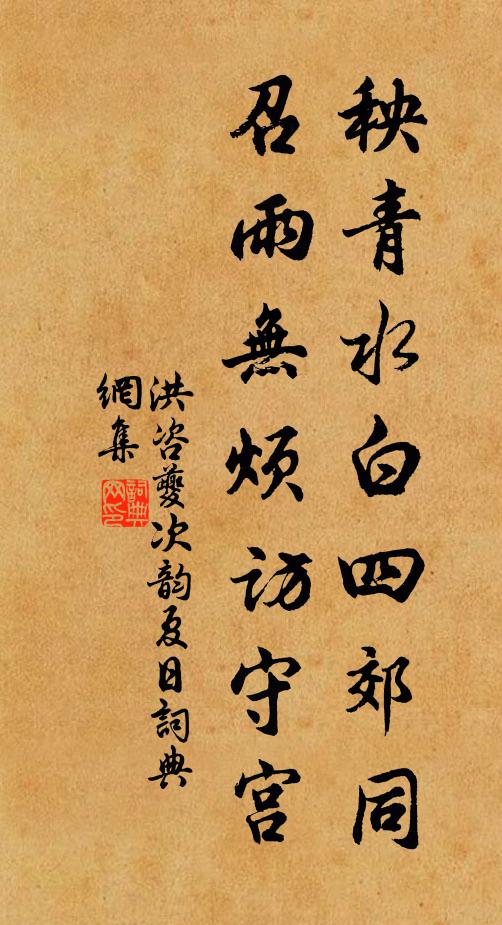 秧青水白四郊同
召雨無煩訪守宮
洪咨夔次韵夏日詞典
網集
詞典網印